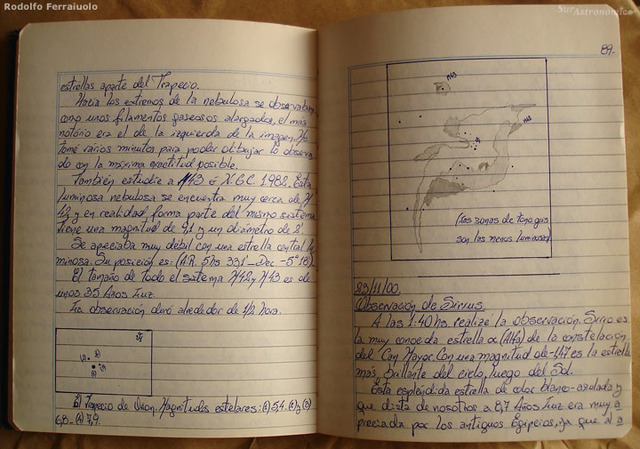 Rodolfo Ferraiuolo
SurAstronómico
estrellas aparte del Trapecio.
Hacia los extremos de la nebulosa se observaban
como unos filamentos gaseosos alargados, el mas
notório era el de la izquierda de la imagen. Me
tomé varios minutos para poder dibujar lo observa
do con la máxima exactitud posible.
También estudie a M43 ó N.G.C. 1982. Esta
luminosa nebulosa se encuentra muy cerca de M
42, y en realidad forma parte del mismo sistema
tiene una magnitud de 9,1 y un diámetro de 8'
Se apreciaba muy debil con una estrella central lu
minosa. Su posición es: (A.R. 5hs 33'1 - Dec -5° 18')
El tamaño de todo el sistema M42 y M43 es de
unos 35 Años Luz.
La observación duró alrededor de 1/2 hora.
El Trapecio de Orion. Magnitudes estelares: 5,4.
6,8 7,9.
89.
M43
M42
(las zonas de tono gris
son las menos luminosas)
23/11/00.
Observación de Sirius.
A las 1:40 hs realizé la observación. Sirio es
la muy conocida estrella α (Alfa) de la constelación
del Can Mayor. Con una magnitud de -1,47 es la estrella
más brillante del cielo, luego del Sol.
Esta esplendida estrella de color blanco-azulada y
que dista de nosotros a 8,7 Años Luz era muy a
preciada por los antiguos Egipcios, ya que al a